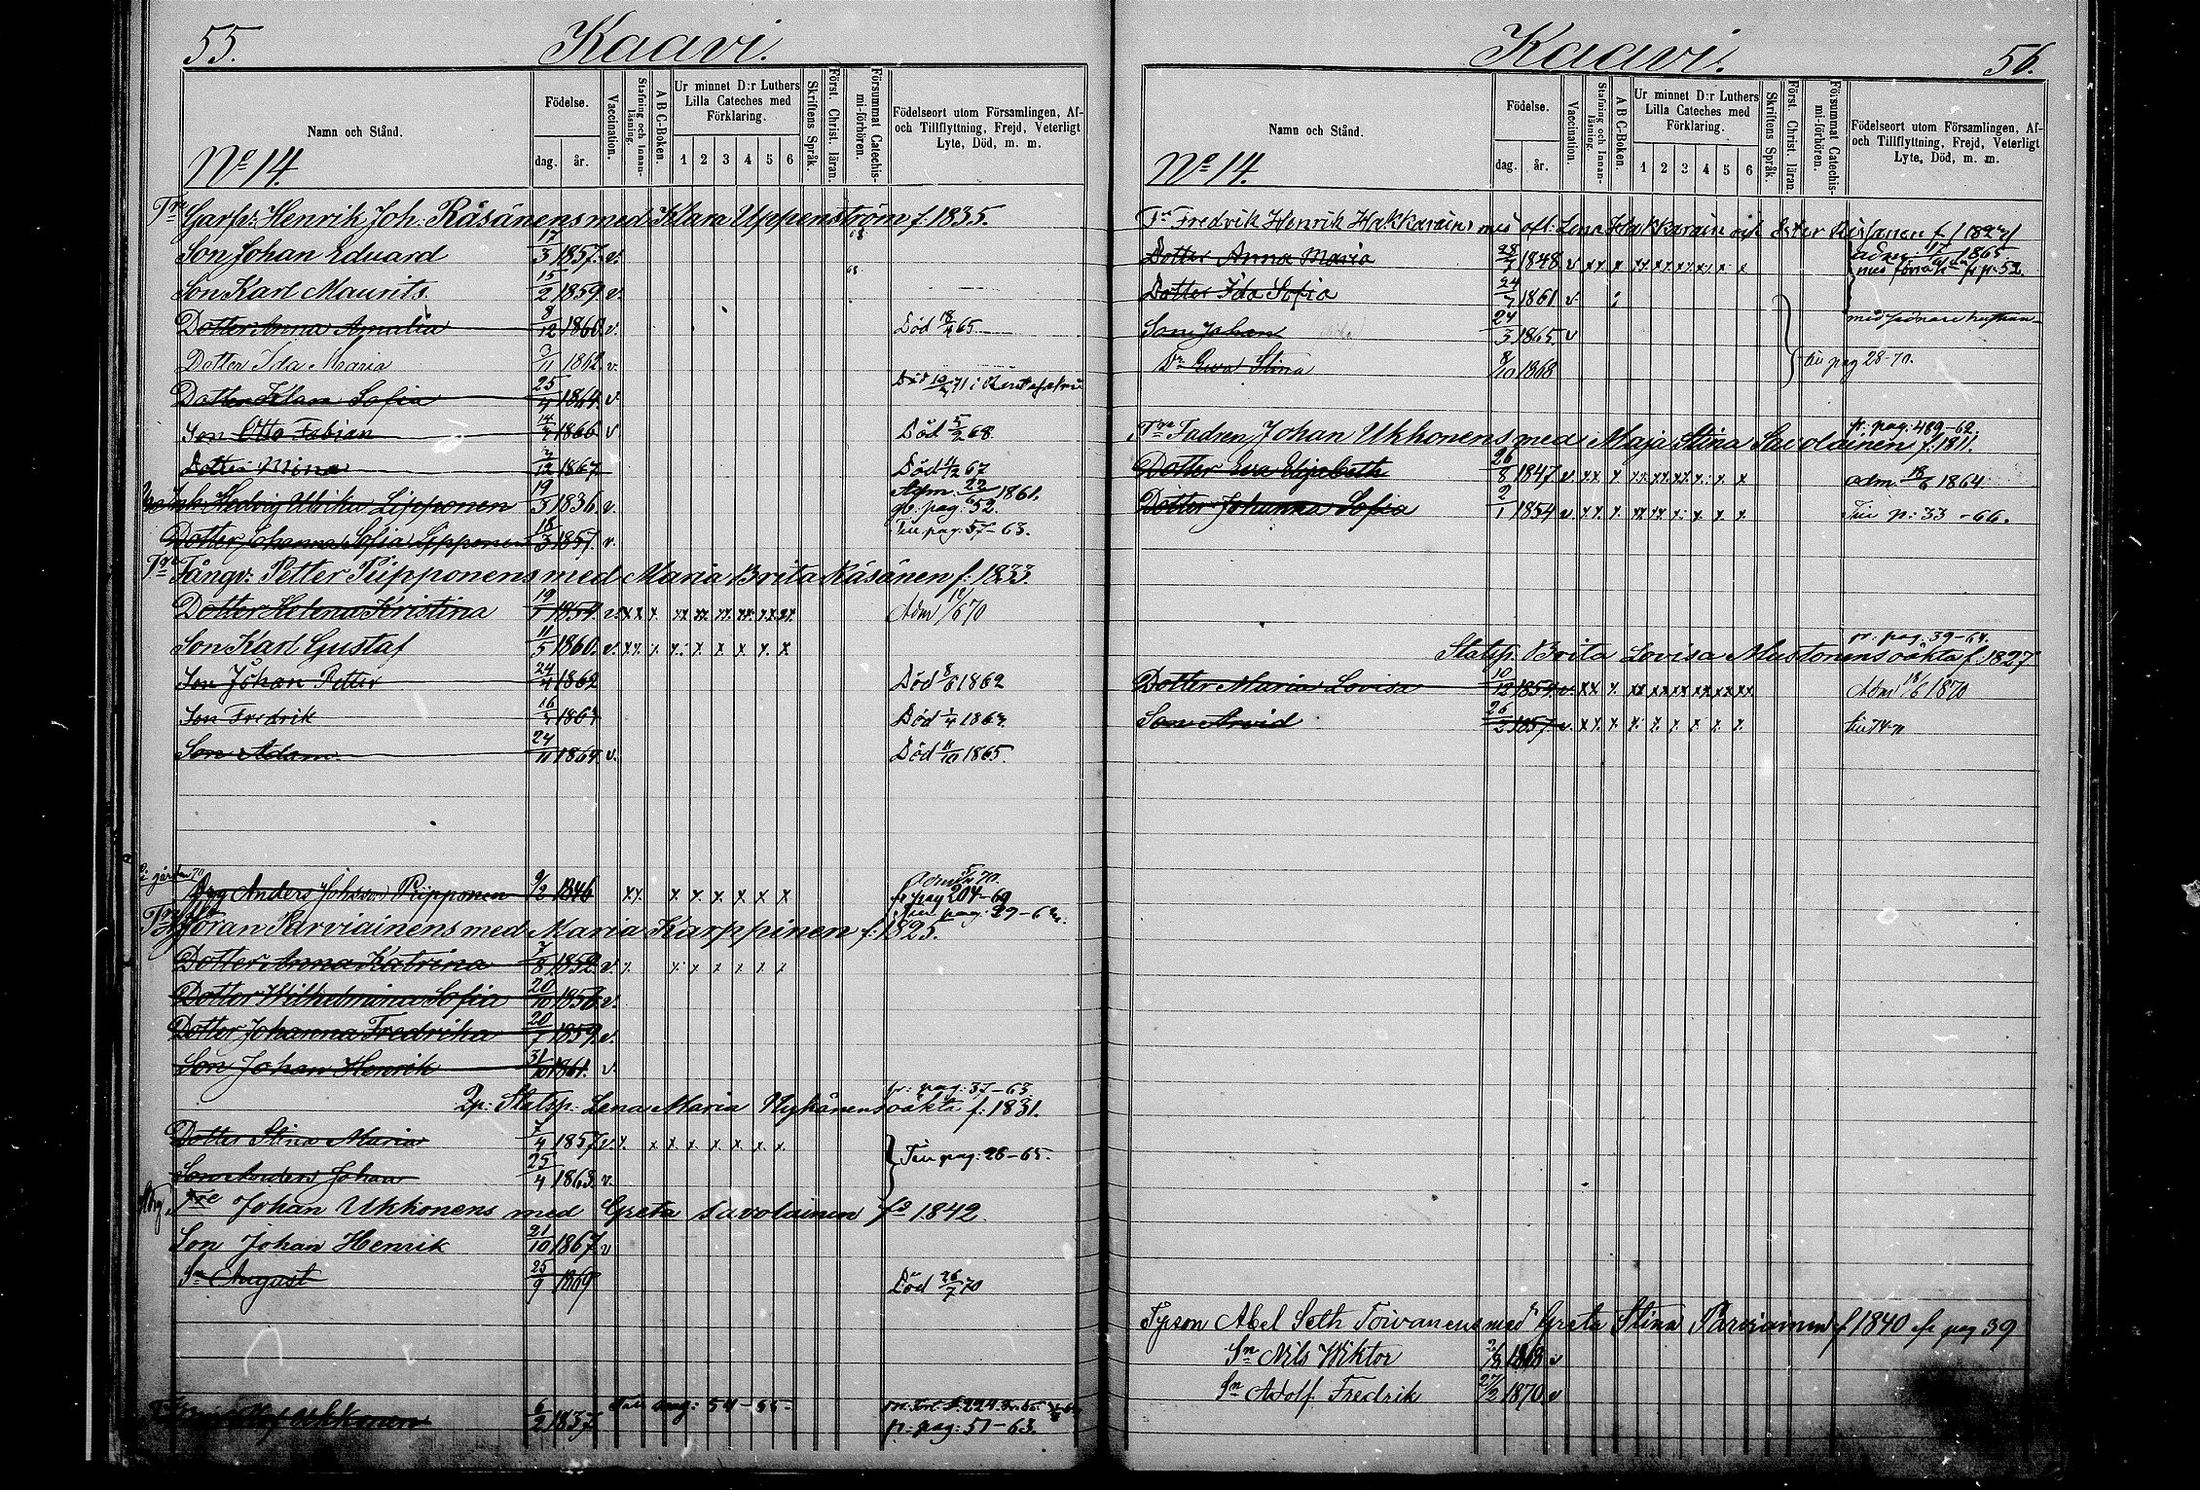 55.
Kaavi.
Namn och Stånd.
Födelse.
dag. år.
Vaccination.
Stafning och Innanläsning.
A B C-Boken.
Ur minnet D:r Luthers Lilla Cateches med Förklaring.
1 2 3 4 5 6
Skriftens Språk.
Först. Christ. läran.
Försummat Catechismi-förhören.
Födelseort utom Församlingen, Af- och Tillflyttning, Frejd, Veterligt Lyte, Död, m. m.
No 14.
Henrik Joh. Räsänens med Klara Uppenström f. 1835.
Son Johan Eduard 17/3 1857. v.
Son Karl Maurits. 15/2 1859 v.
Dotter Anna Amalia 8/12 1860. v. Död 18/4 65
Dotter Ida Maria 3/11 1862. v.
Dotter Klara Sofia 25/4 1864. v.
Son Otto Fabian 14/4 1866 v Död 5/2 68.
Dotter Mina 1867 Död 67
Hedvig Ulrika Lipponen 19/5 1836 v. 1861. pag: 52.
Dotter Johanna Sofia Lipponen 18/3 1857. v. pag: 57-63.
Petter Piipponens med Maria Brita Räsänen f: 1833.
Dotter Helena Kristina 19/ 1854. v. x x x. xx xx. xx. xx. xx Adm 6 70
Son Karl Gustaf 11/5 1860. v. x x. x x. x x x x. x
Son Johan Petter 24/4 1862 Död 8/6 1862
Son Fredrik 16/ 186 Död
Son Adam. 24/11 1864 v. Död 11/10 1865.
Anders Johsson Piipponen 9/2 1846 x x. x x. x. x x x pag 204-69
Göran Parviainens med Maria Karppinen f: 1825. pag: 29-6
Dotter Anna Katrina 7/8 1852 v. x. x: x x x x x
Dotter Wilhelmina Sofia 20/10 1856 v.
Dotter Johanna Fredrika 20/7 1859. v.
Son Johan Henrik 31/10 1861. v.
fr: pag: 37-63
Statsp. Lena Maria Nykänens oäkta f: 1831.
Dotter Stina Maria 7/4 1857 v x. x x x x x x. x.
Son Anders Johan 25/4 1863. v. pag: 26-65.
Johan Ukkonens med Greta Savolainen 1842.
Son Johan Henrik 21/10 1867. v
Sn August 25/9 1869 Död 26/7 70
Ukkonen 6/2 1837. pag: 54-55. pag: 51-63.
Kaavi.
56.
Namn och Stånd.
Födelse.
dag. år.
Vaccination.
Stafning och Innanläsning.
A B C-Boken.
Ur minnet D:r Luthers Lilla Cateches med Förklaring.
1 2 3 4 5 6
Skriftens Språk.
Först. Christ. läran.
Försummat Catechismi-förhören.
Födelseort utom Församlingen, Af- och Tillflyttning, Frejd, Veterligt Lyte, Död, m. m.
No 14.
Fredrik Henrik Hakkarains med Lena Hakkarain och Ester
Dotter Anna Maria 28/ 1848 v x x. x x x. x x. x. x x x x 1865
Dotter Ida Sofia 24/7 1861 v. p: 52.
Son Johan 24/3 1865. v
Dr Eva Stina 8/10 1868 pag 28-70.
fr: pag: 489-62.
Johan Ukkonens med Maja Stina Savolainen f. 1811.
Dotter Eva Elisabeth 26/8 1847 v x x x x x. x x. x x. x. x x adm. 18/6 1864
Dotter Johanna Sofia 2/1 1854 v x x. x. x x x x. x. x. x. x p: 33-66.
pag: 39-64.
Statsp. Brita Lovisa Mustonens oäkta f. 1827
Dotter Maria Lovisa 10/12 1854. v. x x x. x x x x x x x x x x x x Adm 18/6 1870
Son Arvid 26/ 1857. v. x x. x. x. x. x. x x. x. 74-
Abel Seth Toivanens med Greta Stina Parviainen f 1840 pag 39
Sn Nils Wiktor 1868. v
Sn Adolf Fredrik 27/2 1870. v